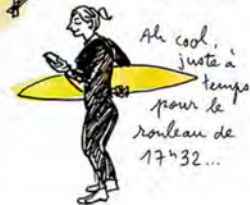 Ah cool,
juste à
temps
pour le
rouleau de
17h32...